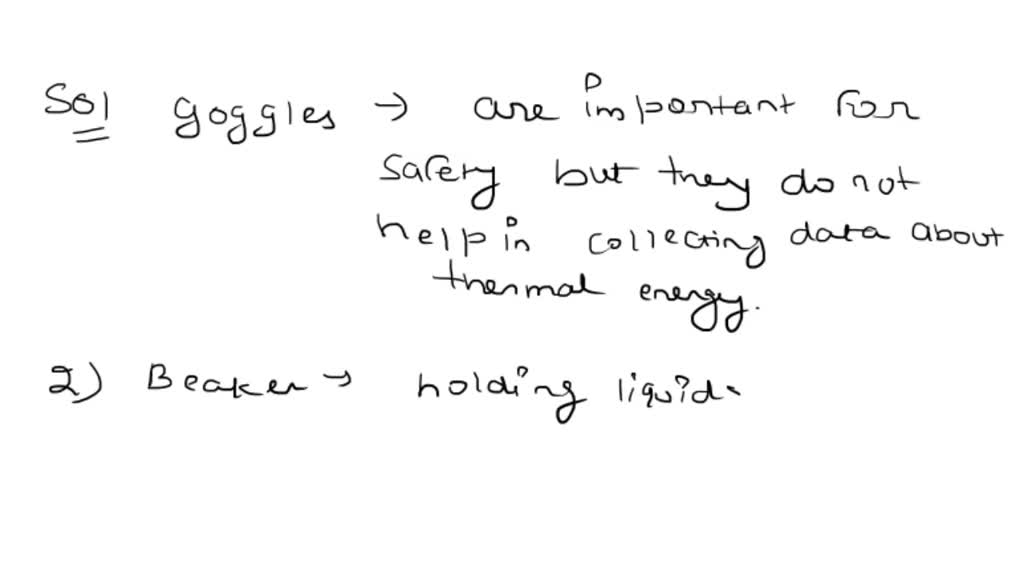 Sol goggles → are important for
safety but they do not
help in collecting data about
thermal energy.
2) Beaker → holding liquid.